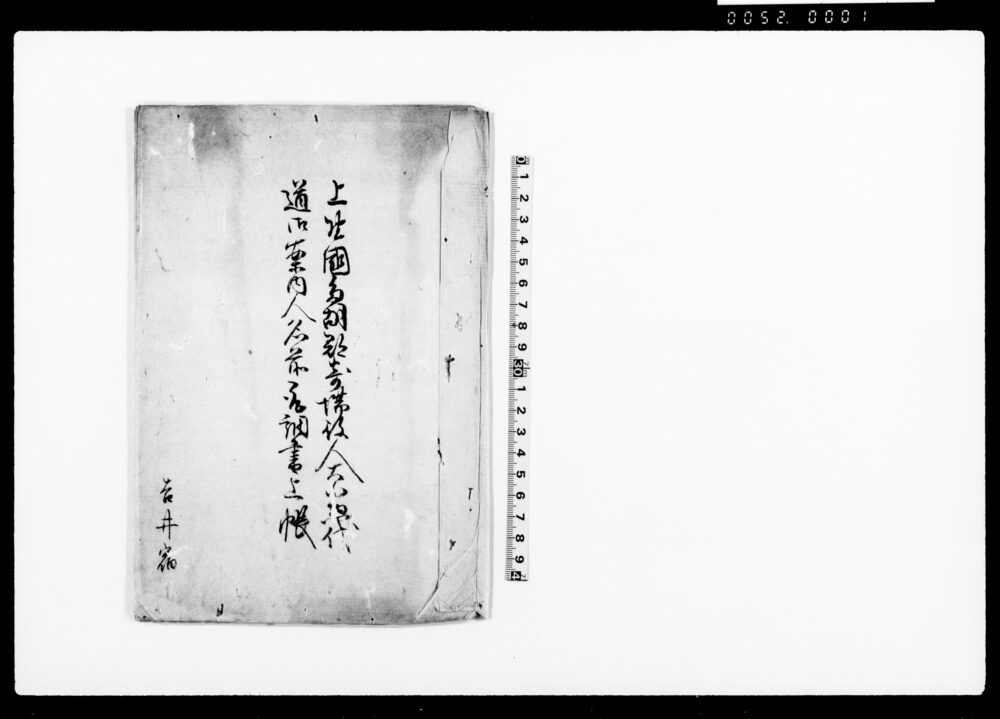 0052.0001
上野國多胡郡寄場役人惣代
道御案内人名前取調書上帳
吉井宿
0 1 2 3 4 5 6 7 8 9 30 1 2 3 4 5 6 7 8 9 4